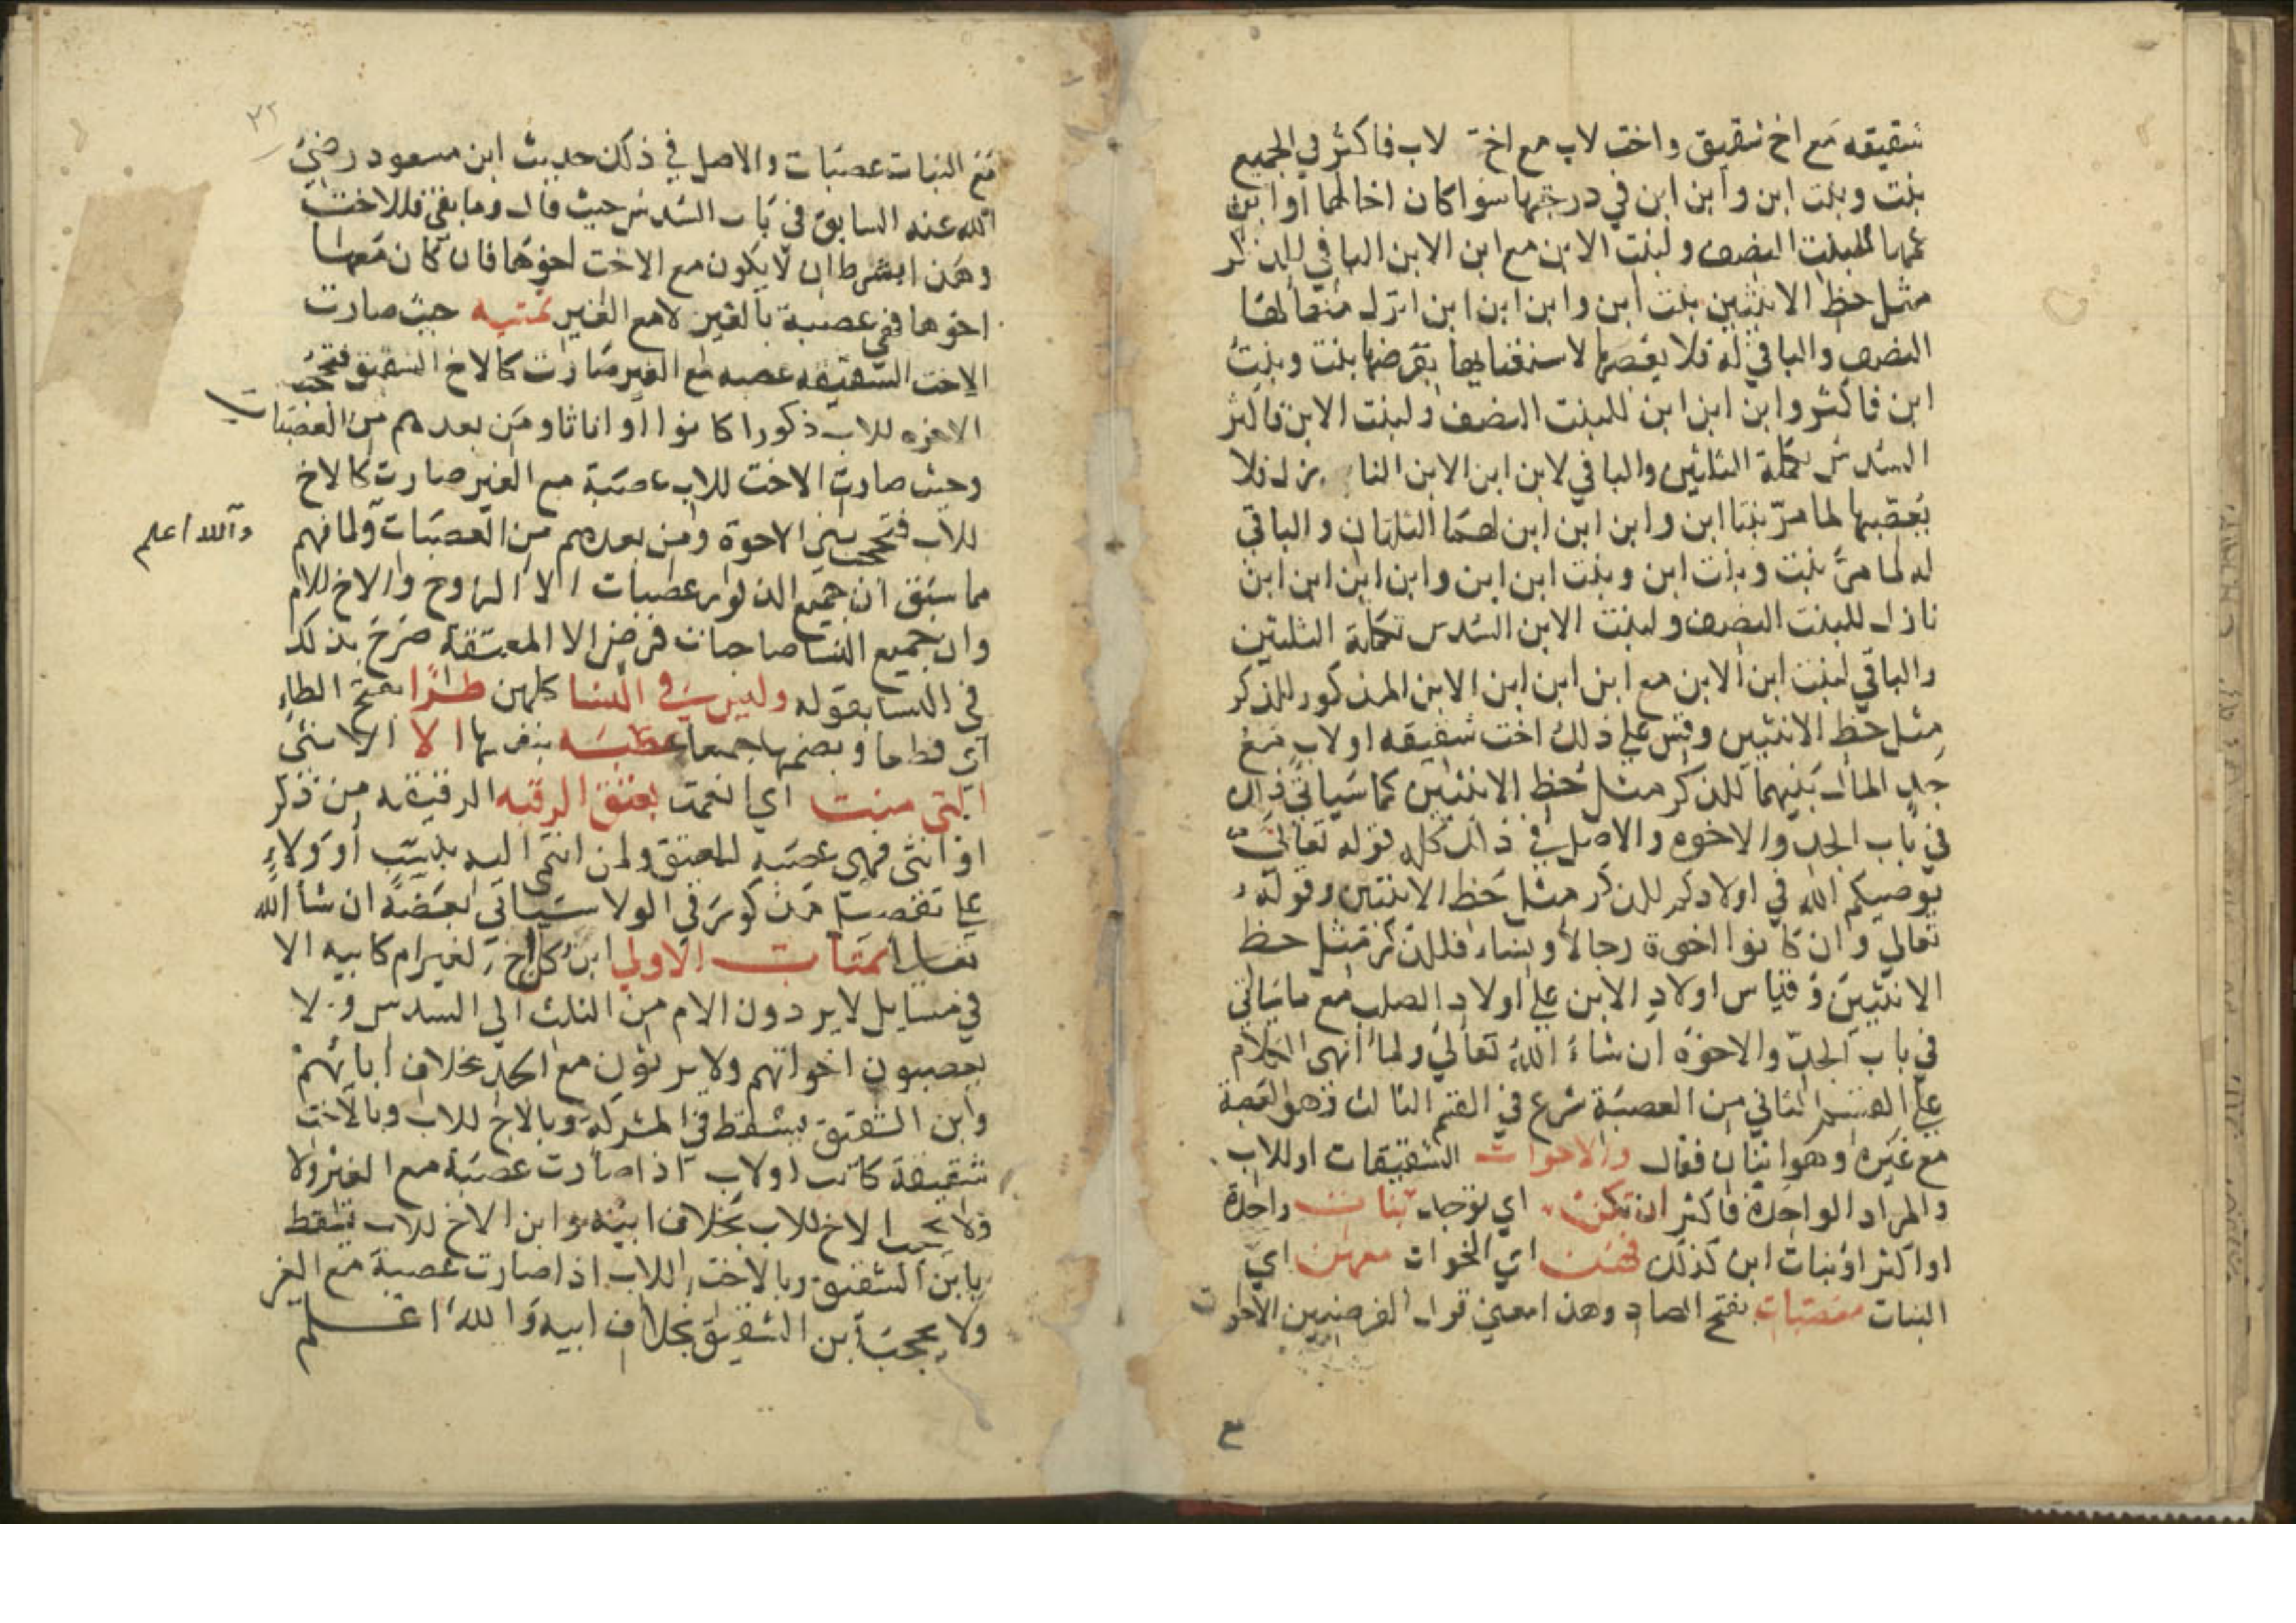 شقيقه مع اخ شقيق واخت لاب مع اخ لاب فاكثر في الجميع
بنت وبنت ابن وابن ابن في درجتها سوا كان اخا لها او ابن
عمها للبنت النصف ولبنت الابن مع ابن الابن الباقي للذكر
مثل حظ الانثيين بنت ابن وابن ابن ابن انزل منها لها
النصف والباقي له فلا يعصبها لاستغنايها بفرضها بنت وبنت
ابن فاكثر وابن ابن ابن للبنت النصف ولبنت الابن فاكثر
السدس تكملة الثلثين والباقي لابن ابن الابن النازل فلا
يعصبها لما مر بنتا ابن وابن ابن ابن لهما الثلثان والباقي
له لما مر بنت وبنت ابن وبنت ابن ابن وابن ابن ابن ابن
نازل للبنت النصف ولبنت الابن السدس تكملة الثلثين
والباقي لبنت ابن الابن مع ابن ابن ابن الابن المذكور للذكر
مثل حظ الانثيين وقس علي ذلك اخت شقيقه او لاب مع
جد المال بينهما للذكر مثل حظ الانثيين كما سياتي ذلك
في باب الجد والاخوه والاصل في ذلك كله قوله تعالي
يوصيكم الله في اولادكم للذكر مثل حظ الانثيين وقوله
تعالي وان كانوا اخوة رجالا ونساء فللذكر مثل حظ
الانثيين وقياس اولاد الابن علي اولاد الصلب مع ما ياتي
في باب الجد والاخوة ان شاء الله تعالي ولما انهى الكلام
علي القسم الثاني من العصبة شرع في القسم الثالث وهو العصبة
مع غيره وهو اثنان فقال والاخوات الشقيقات او للاب
والمراد الواحدة فاكثر ان تكن اي توجد بنات واحدة
او اكثر او بنات ابن كذلك فهن اي الاخوات معهن اي
البنات معصبات بفتح الصاد وهذا معني قول الفرضيين الاخوات
مع
مع البنات عصبات والاصل في ذلك حديث ابن مسعود رضي
الله عنه السابق في باب السدس حيث قال وما بقي فللاخت
وهذا بشرط ان لا يكون مع الاخت اخوها فان كان معها
اخوها فهي عصبة بالغير لا مع الغير تتمه حيث صارت
الاخت الشقيقه عصبه مع الغير صارت كالاخ الشقيق فتحجب
الاخوه للاب ذكورا كانوا او اناثا ومن بعدهم من العصبات
وحيث صارت الاخت للاب عصبة مع الغير صارت كالاخ
للاب فتحجب بني الاخوة ومن بعدهم من العصبات ولما فهم
والله اعلم
مما سبق ان جميع الذكور عصبات الا الزوج والاخ للام
وان جميع النسا صاحبات فرض الا المعتقة صرح بذلك
في النسا بقوله وليس في النسا كلهن طرا بفتح الطاء
اي قطعا وبضمها جميعا عصبه بنفسها الا الانثى
التي منت اي انعمت بعتق الرقبه الرقيقه من ذكر
او انثى فهي عصبه للعتيق ولمن انتمى اليه بنسب او ولاء
علي تفصيل مذكور في الولا سياتي بعضه ان شا الله
تعالي تتمات الاولي ابن كل اخ لغير ام كابيه الا
في مسايل لا يردون الام من الثلث الي السدس ولا
يعصبون اخواتهم ولا يرثون مع الجد بخلاف ابائهم
وابن الشقيق يسقط في المشركة وبالاخ للاب وبالاخت
شقيقة كانت او لاب اذا صارت عصبة مع الغير ولا
ولا يحجب الاخ للاب بخلاف ابيه وابن الاخ للاب يسقط
بابن الشقيق وبالاخت للاب اذا صارت عصبة مع الغير
ولا يحجب ابن الشقيق بخلاف ابيه والله اعلم